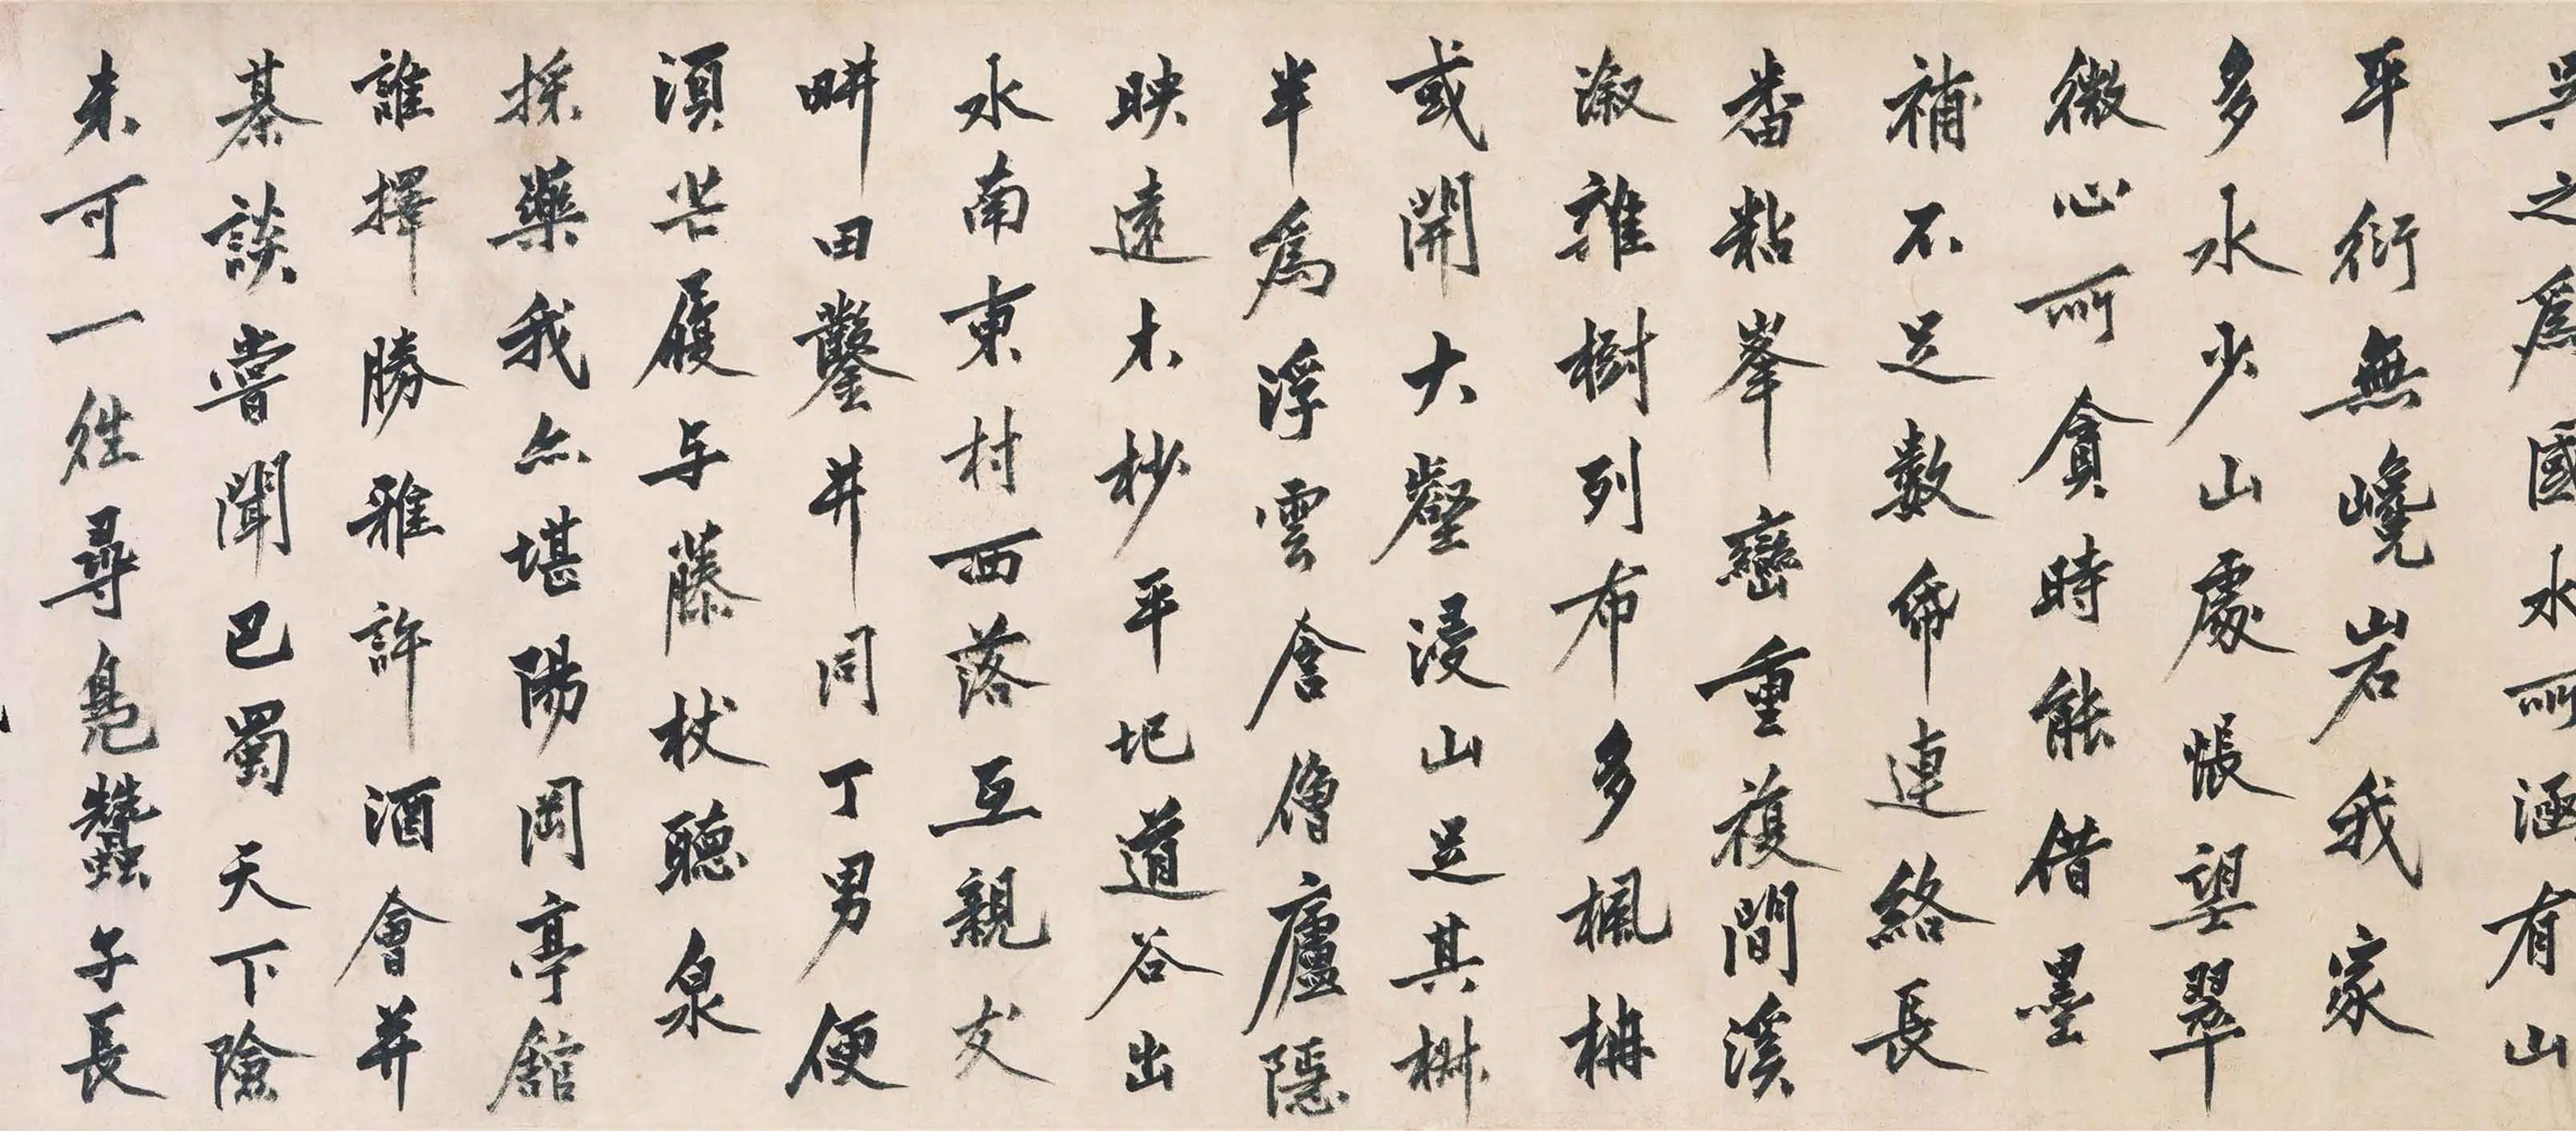 吴之為國水所涵有山
平衍無巉岩我家
多水少山處悵望翠
微心所貪時能借墨
補不足數帋連絡長
番粘峯巒重複間溪
溆雜樹列布多楓枏
或開大壑浸山足其樹
半為浮雲含僧廬隱
映遠木杪平圯道谷出
水南東村西落互親友
畊田鑿井同丁男便
須芒屨与藤杖聽泉
採藥我亦堪陽岡亭舘
誰擇勝雅許酒會并
棊談嘗聞巴蜀天下險
未可一往尋鳧蠶子長